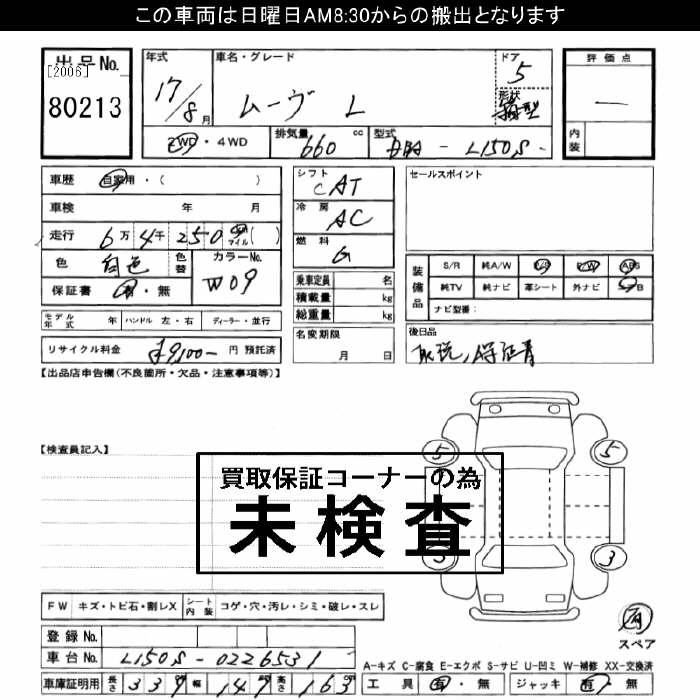 この車両は日曜日AM8:30からの搬出となります
出品No.
[2006]
80213
年式
17/8月
車名・グレード
ムーヴ L
ドア
5
形状
箱型
評価点
ー
内装
2WD・4WD
排気量
660 cc
型式
DBA - L150S -
車歴 自家用・( )
車検 年 月
走行 6万4千250 km マイル( )
色 白色 色替 カラーNo. W09
保証書 有・無
シフト
CAT
冷房
AC
燃料
G
乗車定員 名
積載量 kg
総重量 kg
セールスポイント
装備品
S/R 純A/W P/S P/W ABS
純TV 純ナビ 革シート 外ナビ A/B
ナビ型番:
モデル年式 年 ハンドル 左・右 ディーラー・並行
リサイクル料金 ¥9,100- 円 預託済
名変期限
月 日
後日品
取説、保証書
【出品店申告欄(不良箇所・欠品・注意事項等)】
【検査員記入】
買取保証コーナーの為
未検査
5
5
3
3
FW キズ・トビ石・割レX シート内装 コゲ・穴・汚レ・シミ・破レ・スレ
登録No.
車台No. L150S-0226531
車庫証明用 長さ 339 幅 147 高さ 163
有
スペア
A-キズ C-腐食 E-エクボ S-サビ U-凹ミ W-補修 XX-交換済
工具 有・無 ジャッキ 有・無